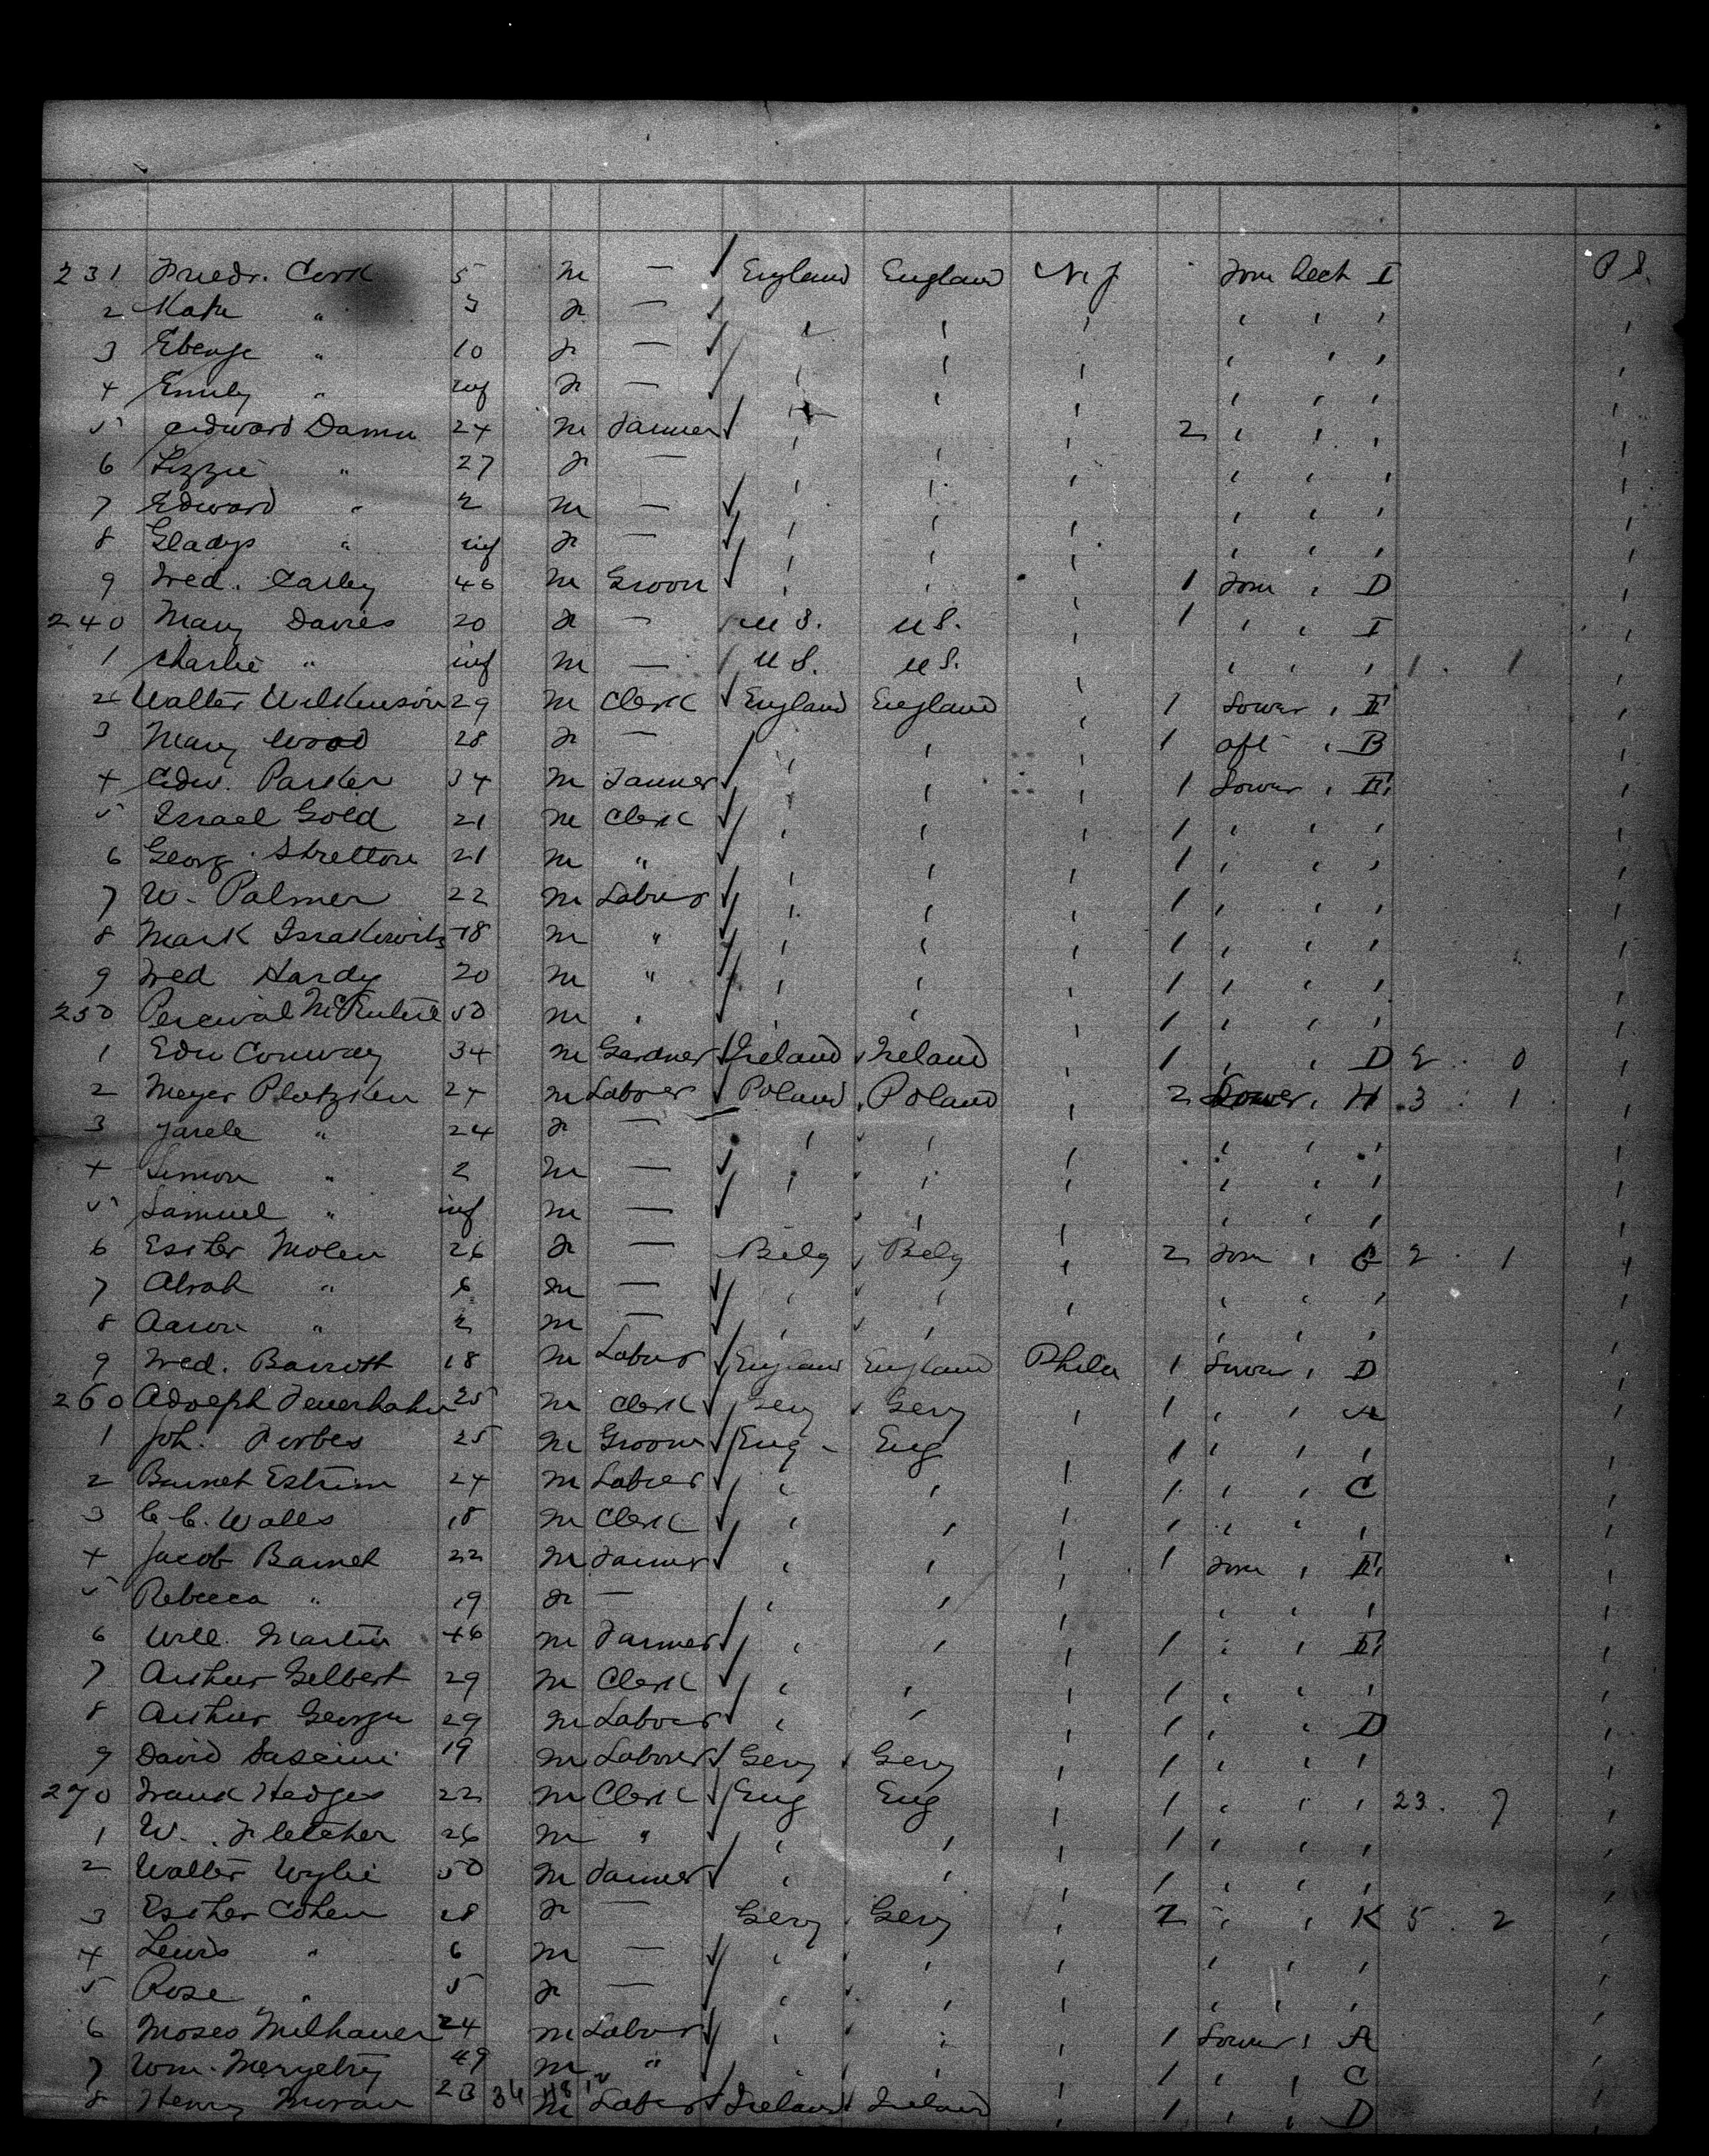 231 Friedr. Cork 5 m — England England N.J. Forw Deck I P S.
2 Kate " 3 F —
3 " 10 F —
4 Emily " inf F —
5 Edward Damm 24 m Farmer 2
6 Lizzie " 27 F —
7 Edward " 2 m —
8 Gladys " inf F —
9 Fred. Earley 46 m Groom 1 Forw D
240 Mary Davies 20 F — U S. U S. 1 I
1 Charlie " inf m — U S. U S. 1 . 1
2 Walter Wilkinson 29 m Clerk England England 1 Lower II
3 Mary Wood 28 F — 1 aft B
4 Edw. Parker 34 m Farmer 1 Lower II
5 Israel Gold 21 m Clerk 1
6 Georg Stretton 21 m " 1
7 W. Palmer 22 m Labor 1
8 Mark Israkowitz 18 m " 1
9 Fred Hardy 20 m " 1
250 Percival 50 m 1
1 Edw Conway 34 m Gardner Ireland Ireland 1 D 2 . 0
2 Meyer Plotzken 24 m Laborer Poland Poland 2 Lower H 3 . 1
3 " 24 F —
4 Simon " 2 m —
5 Samuel " inf m —
6 Esther Molen 26 F — Belg Belg 2 Forw G 2 . 1
7 Abrah " 6 m —
8 Aaron " 2 m —
9 Fred. Barrott 18 m Labor England England Phila 1 Lower D
260 Adolph Feuerhahn 25 m Clerk Gery Gery 1 A
1 Joh. Forbes 25 m Groom Eng Eng 1
2 Barnet Estrin 24 m Laborer 1 C
3 C. C. Walls 18 m Clerk 1
4 Jacob Barnet 22 m Farmer 1 Forw II
5 Rebecca " 19 F —
6 Will. Martin 46 m Farmer 1 II
7 Arthur Gilbert 29 m Clerk 1
8 Arthur George 29 m Laborer 1 D
9 David 19 m Laborer Gery Gery 1
270 Frank Hedges 22 m Clerk Eng Eng 1 23 . 7
1 W. Fletcher 26 m " 1
2 Walter Wylie 50 m Farmer 1
3 Esther Cohen 28 F — Gery Gery 2 K 5 . 2
4 Lewis " 6 m —
5 Rose " 5 F —
6 Moses Milhauer 24 m Labor 1 Lower A
7 Wm. 49 m " 1 C
8 Henry Moran 23 m Labor Ireland Ireland 1 D